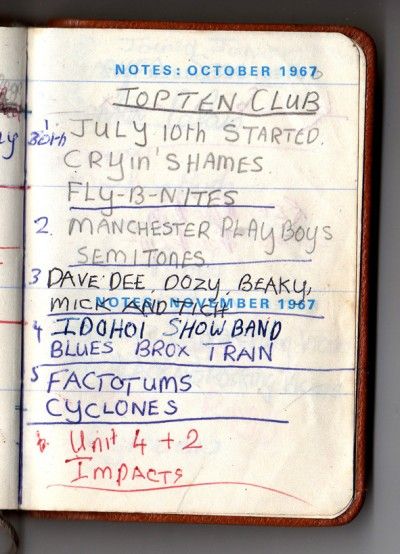 NOTES: OCTOBER 1967
TOP TEN CLUB
1. JULY 10th STARTED.
30th CRYin'SHAMES.
FLY-B-NITES
2. MANCHESTER PLAYBOYS
SEMITONES
3 DAVE DEE, DOZY, BEAKY,
MICK AND TICH
NOTES: NOVEMBER 1967
4 IDOHOI SHOWBAND
BLUES BROX TRAIN
5 FACTOTUMS
CYCLONES
6. Unit 4 + 2
IMPACTS